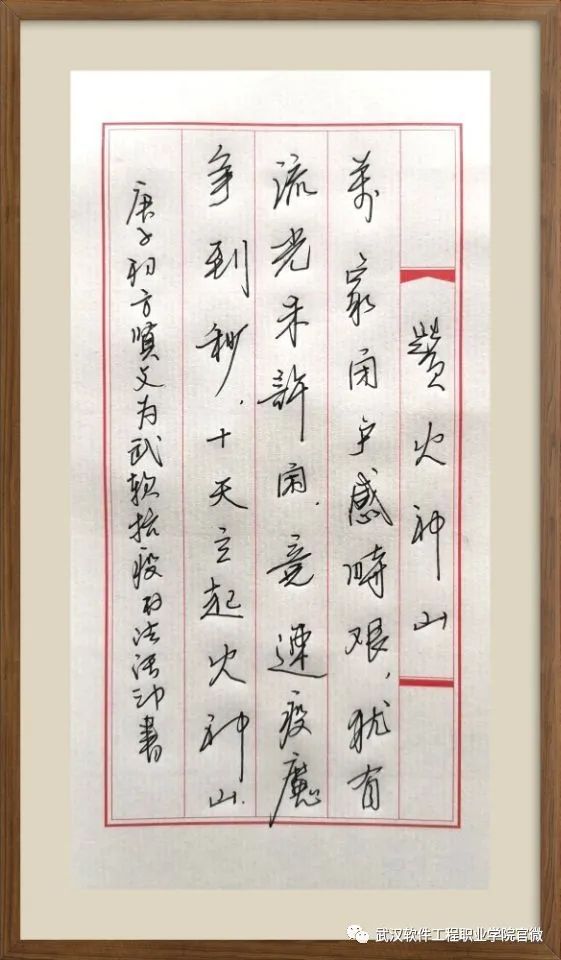 赞火神山
万家闭户感時艰，犹有
流光未許闲.竟速疫魔
争到秒.十天立起火神山.
庚子初方贤文为武软抗疫书法活动書
武汉软件工程职业学院官微